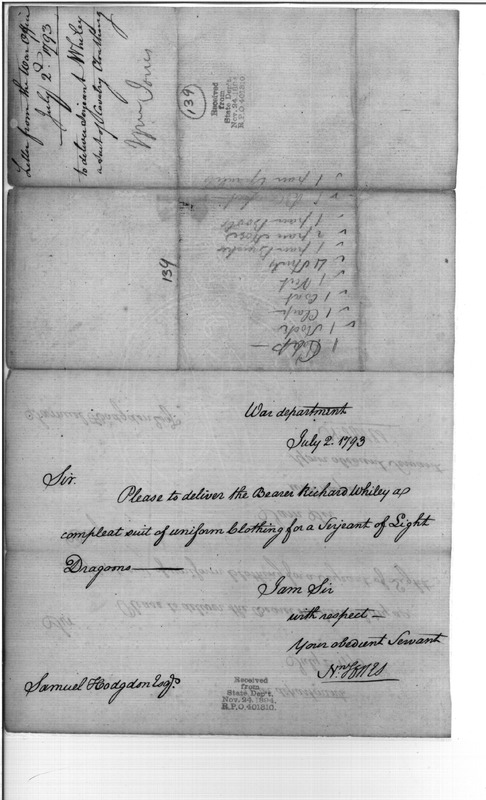 Letter from the War Office
July 2d. 1793
to deliver Serjeant Whiley
a suit of Cavalry Cloathing
Wm Jones
139
Received
from
State Dep't.
Nov. 24, 1894,
R.P.O. 401810.
139
1 Stock
1 Clasp
1 Coat
1 Vest
4 Shirts
1 pair
2 pair Hose
1 pair Boots
1 pair
War department
July 2. 1793
Sir.
Please to deliver the Bearer Richard Whiley a
compleat suit of uniform Clothing for a Serjeant of Light
Dragoons
I am Sir
with respect
Your obedient Servant
Wm Jones
Samuel Hodgdon Esqr.
Received
from
State Dep't.
Nov. 24, 1894,
R.P.O. 401810.